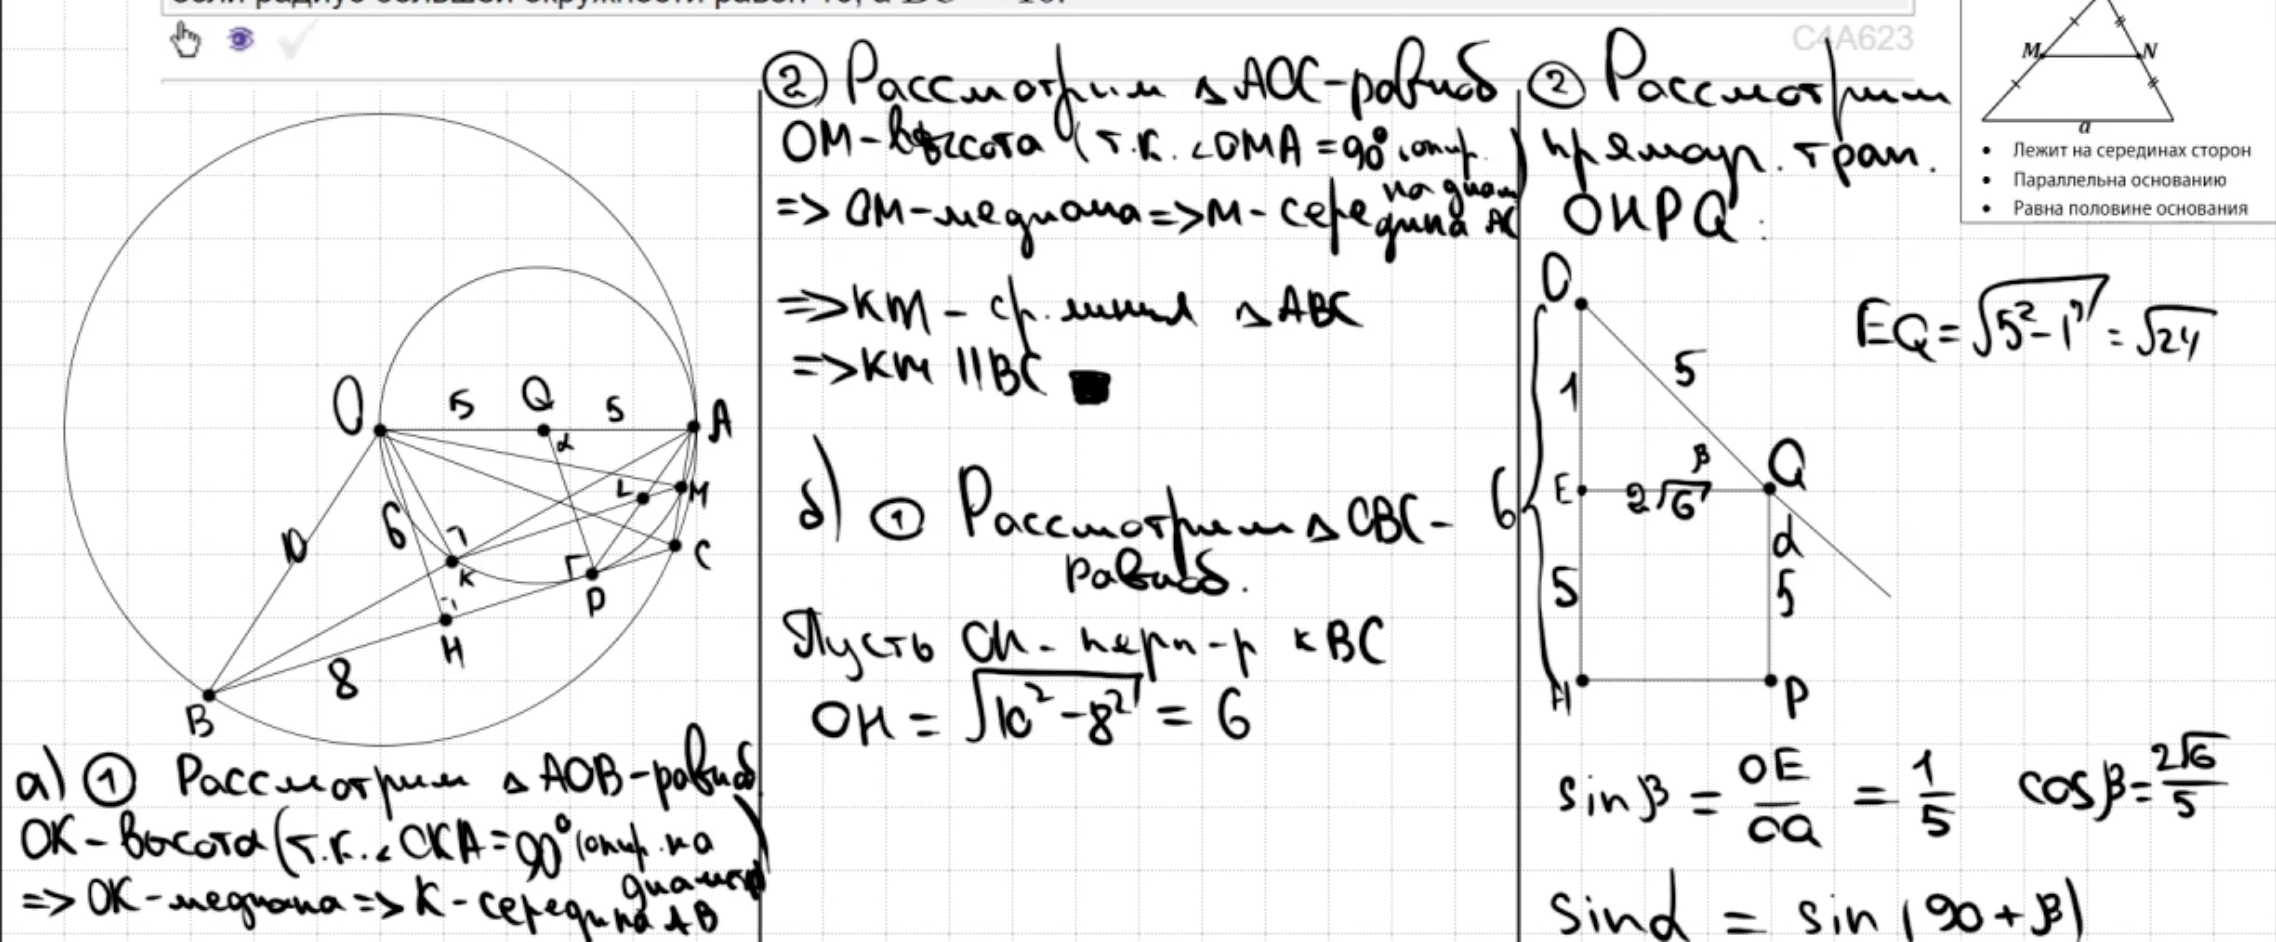 C4A623
M N
a
• Лежит на серединах сторон
• Параллельна основанию
• Равна половине основания
O 5 Q 5 A
α
L M
6 K C
10 P
H
8
B
а) ① Рассмотрим △ AOB-равноб
OK-высота (т.к. ∠OKA=90° (опир. на диаметр)
=> OK-медиана => K-середина AB
② Рассмотрим △ AOC-равноб
OM-высота (т.к. ∠OMA=90° (опир. на диам)
=> OM-медиана => M-середина AC
=> KM - ср. линия △ ABC
=> KM || BC
б) ① Рассмотрим △ OBC-
равноб.
Пусть OH - перп-р к BC
OH = √10²-8² = 6
② Рассмотрим
прямоуг. трап.
OHPQ:
O
1 5
E 2√6 β Q
6 α
5 5
H P
EQ = √5²-1² = √24
sinβ = OE/OQ = 1/5 cosβ = 2√6/5
sinα = sin(90+β)